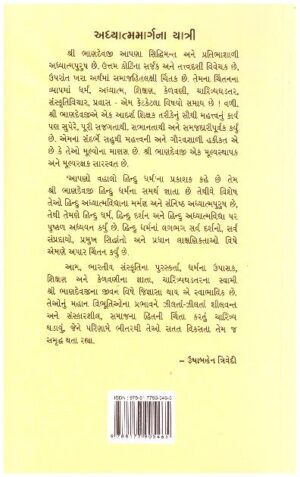 અધ્યાત્મમાર્ગના યાત્રી
શ્રી ભાણદેવજી આપણા સિદ્ધિમન્ત અને પ્રતિભાશાળી
અધ્યાત્મપુરુષ છે. ઉત્તમ કોટિના સર્જક અને તત્ત્વદર્શી વિવેચક છે,
ઉપરાંત ખરા અર્થમાં સમાજહિતલક્ષી ચિંતક છે. તેમના ચિંતનના
વ્યાપમાં ધર્મ, અધ્યાત્મ, શિક્ષણ, કેળવણી, ચારિત્ર્યઘડતર,
સંસ્કૃતિવિચાર, પ્રવાસ - એમ કેટકેટલા વિષયો સમાય છે ! વળી,
શ્રી ભાણદેવજીએ એક આદર્શ શિક્ષક તરીકેનું સૌથી મહત્ત્વનું કાર્ય
પણ સુપેરે, પૂરી સજગતાથી, સભાનતાથી અને સમજદારીપૂર્વક કર્યું
છે. એમના સંદર્ભે સહુથી મહત્ત્વની અને ગૌરવશાળી હકીકત એ
છે કે તેઓ મૂલ્યોના માણસ છે. શ્રી ભાણદેવજી એક મૂલ્યસ્થાપક
અને મૂલ્યરક્ષક સારસ્વત છે.
'આપણો વહાલો હિન્દુ ધર્મ'ના પ્રકાશક કહે છે તેમ
શ્રી ભાણદેવજી હિન્દુ ધર્મના સમર્થ જ્ઞાતા છે તેવીરે વિશેષ
તેઓ હિન્દુ અધ્યાત્મવિદ્યાના મર્મજ્ઞ અને સંનિષ્ઠ અધ્યાત્મપુરુષ છે,
તેથી તેમણે હિન્દુ ધર્મ, હિન્દુ દર્શન અને હિન્દુ અધ્યાત્મવિદ્યા પર
પુષ્કળ અધ્યયન કર્યું છે. હિન્દુ ધર્મનાં લગભગ સર્વ દર્શનો, સર્વ
સંપ્રદાયો, પ્રમુખ સિદ્ધાંતો અને પ્રધાન લાક્ષણિકતાઓ વિષે
એમણે અપાર ચિંતન કર્યું છે.
આમ, ભારતીય સંસ્કૃતિના પુરસ્કર્તા, ધર્મના ઉપાસક,
શિક્ષણ અને કેળવણીના જ્ઞાતા, ચારિત્ર્યઘડતરના સ્વામી
શ્રી ભાણદેવજીના જીવન વિષે જિજ્ઞાસા થાય એ સ્વાભાવિક છે.
તેઓનું મહાન વિભૂતિઓના પ્રભાવને ઝીલતાં-ઝીલતાં શીલવન્ત
અને સંસ્કારશીલ, સમાજના હિતની ચિંતા કરતું ચારિત્ર્ય
ઘડાયું, જેને પરિણામે ભીતરથી તેઓ સતત વિકસતા તેમ જ
સમૃદ્ધ થતા રહ્યા.
– ઉષાબહેન ત્રિવેદી